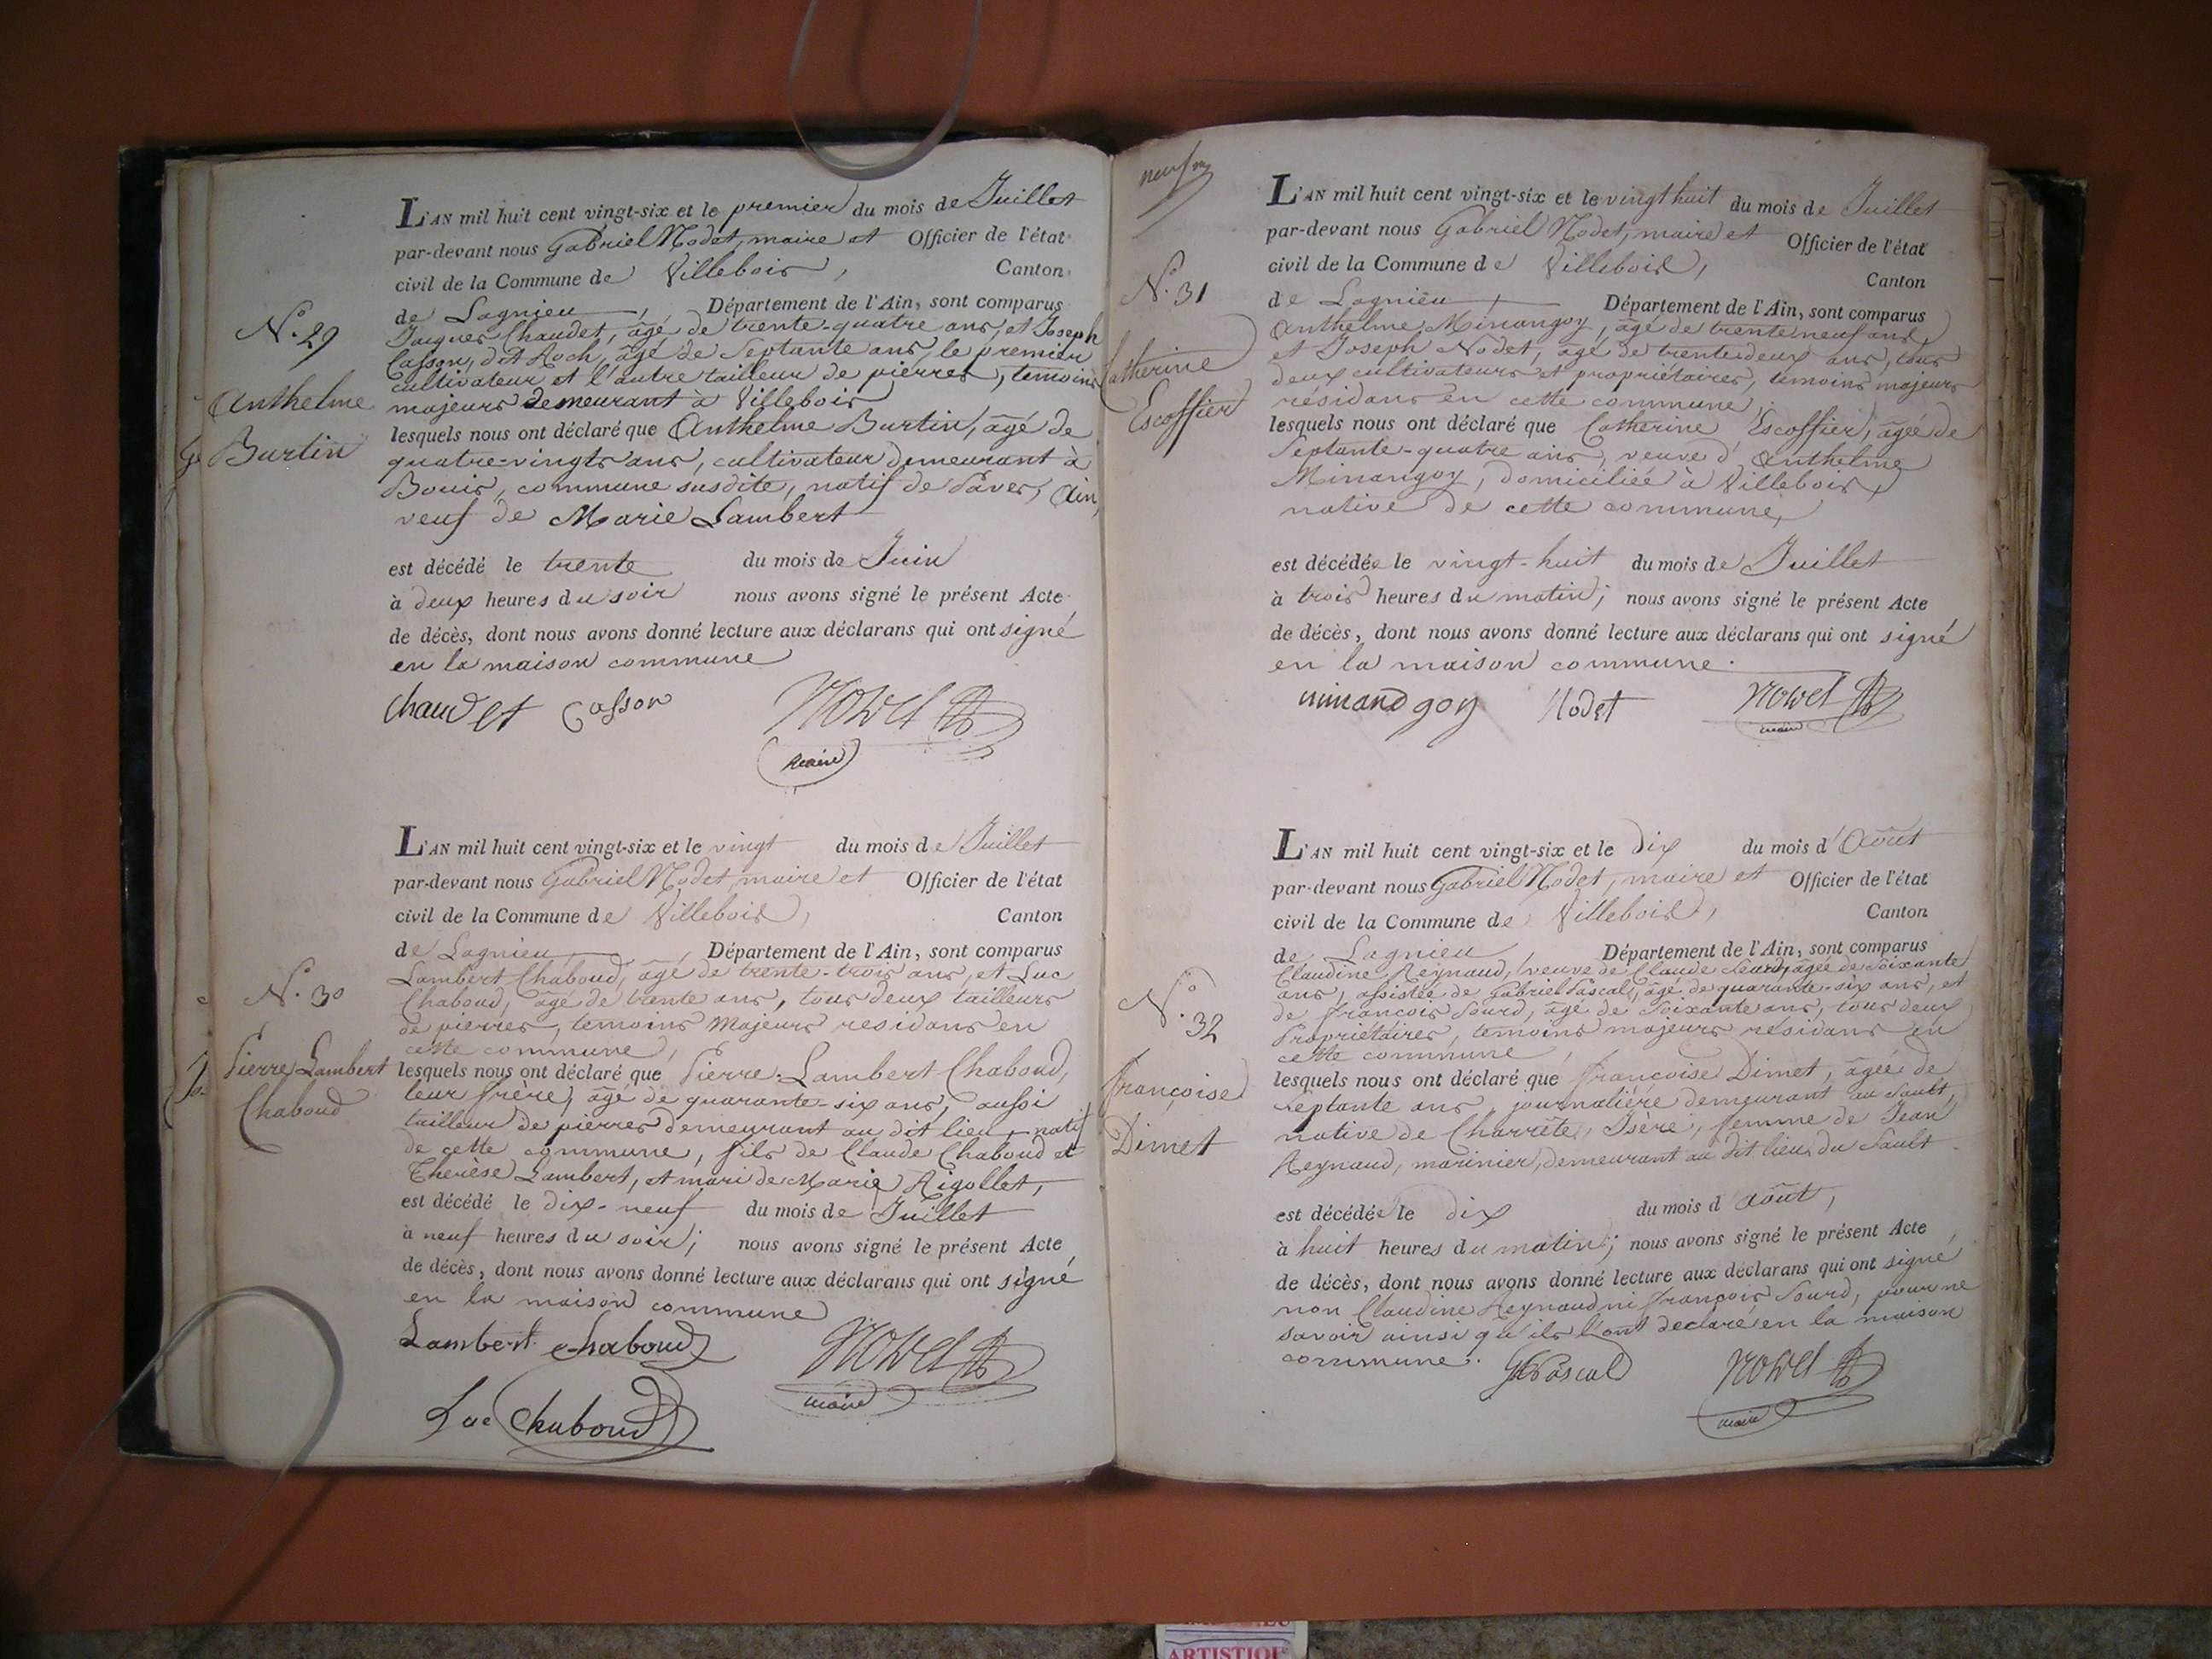 L'AN mil huit cent vingt-six et le premier du mois de Juillet
par-devant nous Gabriel Nodet, maire et Officier de l'état
civil de la Commune de Villebois, Canton
de Lagnieu, Département de l'Ain, sont comparus
N.° 29
Jacques Chaudet, âgé de trente-quatre ans, et Joseph
Casson, dit Roch, âgé de Septante ans, le premier
cultivateur et l'autre tailleur de pierres, temoins
Anthelme
majeurs demeurant à Villebois
lesquels nous ont déclaré que Anthelme Burtin, âgé de
Burtin
quatre-vingts ans, cultivateur demeurant à
Bouis, commune susdite, natif de Saver, Ain,
veuf de Marie Lambert
est décédé le trente du mois de Juin
à deux heures du soir nous avons signé le présent Acte
de décès, dont nous avons donné lecture aux déclarans qui ont signé
en la maison commune
Chaudet Casson Nodet
maire
L'AN mil huit cent vingt-six et le vingt du mois de Juillet
par-devant nous Gabriel Nodet, maire et Officier de l'état
civil de la Commune de Villebois, Canton
de Lagnieu, Département de l'Ain, sont comparus
Lambert Chaboud, âgé de trente-trois ans, et Luc
N.° 30
Chaboud, âgé de trente ans, tous deux tailleurs
de pierres, temoins Majeurs residans en
cette commune,
Pierre Lambert
Chaboud
lesquels nous ont déclaré que Pierre Lambert Chaboud,
leur frère, âgé de quarante-six ans, aussi
tailleur de pierres demeurant au dit lieu, natif
de cette commune, fils de Claude Chaboud et
Therèse Lambert, et mari de Marie Rigollet,
est décédé le dix-neuf du mois de Juillet
à neuf heures du soir; nous avons signé le présent Acte
de décès, dont nous avons donné lecture aux déclarans qui ont signé
en la maison commune
Lambert Chaboud Nodet
maire
Luc Chaboud
L'AN mil huit cent vingt-six et le vingt huit du mois de Juillet
par-devant nous Gabriel Nodet, maire et Officier de l'état
civil de la Commune de Villebois, Canton
N.° 31
de Lagnieu, Département de l'Ain, sont comparus
Anthelme Minangoy, âgé de trente neuf ans,
et Joseph Nodet, âgé de trente deux ans, tous
Catherine
Escoffier
deux cultivateurs et propriétaires, temoins majeurs
résidans en cette commune,
lesquels nous ont déclaré que Catherine Escoffier, âgée de
Septante-quatre ans, veuve d'Anthelme
Minangoy, domiciliée à Villebois,
native de cette commune,
est décédée le vingt-huit du mois de Juillet
à trois heures du matin; nous avons signé le présent Acte
de décès, dont nous avons donné lecture aux déclarans qui ont signé
en la maison commune.
minandgoy Nodet Nodet
maire
L'AN mil huit cent vingt-six et le dix du mois d'Août
par-devant nous Gabriel Nodet, maire et Officier de l'état
civil de la Commune de Villebois, Canton
de Lagnieu, Département de l'Ain, sont comparus
Claudine Reynaud, veuve de Claude Sourd, âgée de soixante
ans, assistée de Gabriel Pascal, âgé de quarante-six ans, et
N.° 32
de François Sourd, âgé de Soixante ans, tous deux
Propriétaires, temoins majeurs résidans en
cette commune,
Françoise
Dimet
lesquels nous ont déclaré que Françoise Dimet, âgée de
septante ans, journalière demeurant au Sault,
native de Charrête, Isère, femme de Jean
Reynaud, marinier, demeurant au dit lieu du Sault
est décédée le dix du mois d'août,
à huit heures du matin; nous avons signé le présent Acte
de décès, dont nous avons donné lecture aux déclarans qui ont signé
non Claudine Reynaud ni François Sourd, pour ne
savoir ainsi qu'ils l'ont declaré en la maison
commune. Pascal Nodet
maire
ARTISTIQUE